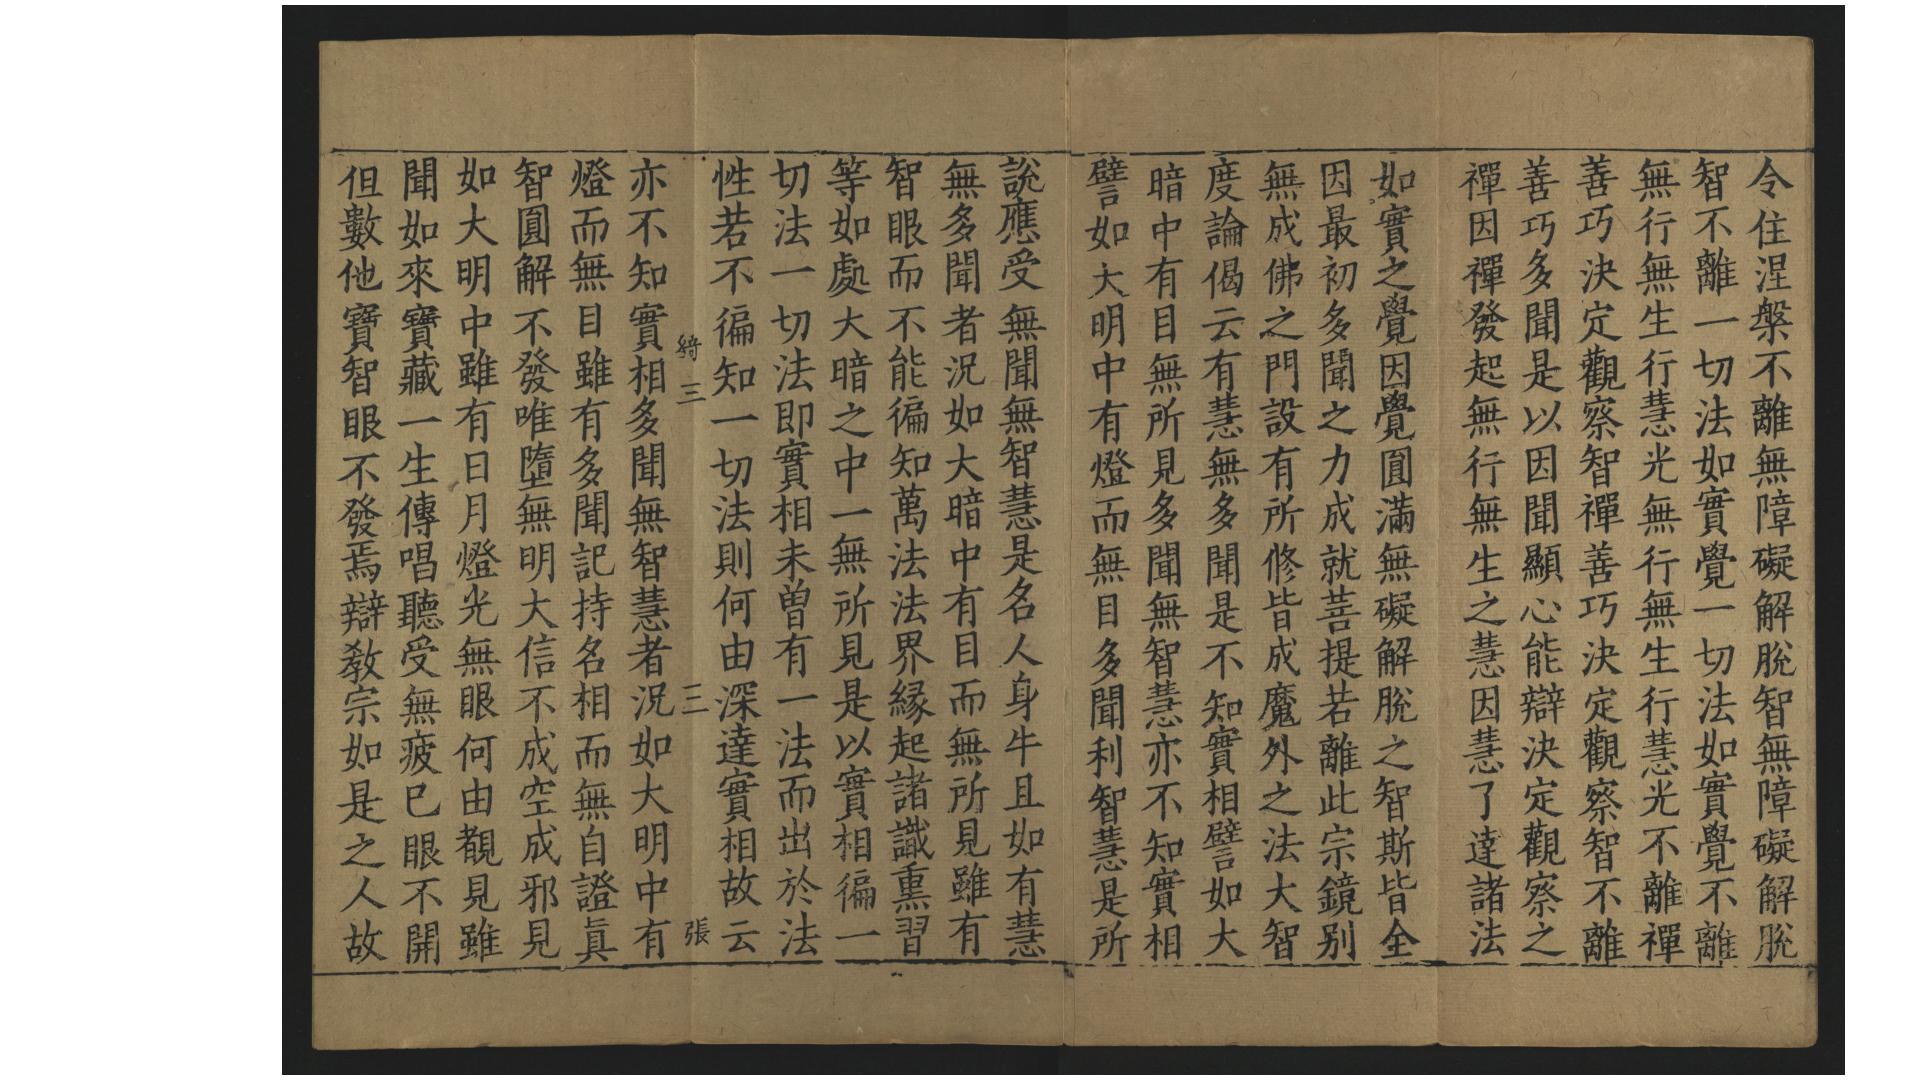 令住涅槃不離無障礙解脫智無障礙解脫
智不離一切法如實覺一切法如實覺不離
無行無生行慧光無行無生行慧光不離禪
善巧決定觀察智禪善巧決定觀察智不離
善巧多聞是以因聞顯心能辯決定觀察之
禪因禪發起無行無生之慧因慧了達諸法
如實之覺因覺圓滿無礙解脫之智斯皆全
因最初多聞之力成就菩提若離此宗鏡别
無成佛之門設有所修皆成魔外之法大智
度論偈云有慧無多聞是不知實相譬如大
暗中有目無所見多聞無智慧亦不知實相
譬如大明中有燈而無目多聞利智慧是所
說應受無聞無智慧是名人身牛且如有慧
無多聞者況如大暗中有目而無所見雖有
智眼而不能徧知萬法法界緣起諸識熏習
等如處大暗之中一無所見是以實相徧一
切法一切法即實相未曾有一法而出於法
性若不徧知一切法則何由深達實相故云
綺三 三 張
亦不知實相多聞無智慧者況如大明中有
燈而無目雖有多聞記持名相而無自證真
智圓解不發唯墮無明大信不成空成邪見
如大明中雖有日月燈光無眼何由覩見雖
聞如來寶藏一生傳唱聽受無疲已眼不開
但數他寶智眼不發焉辯教宗如是之人故